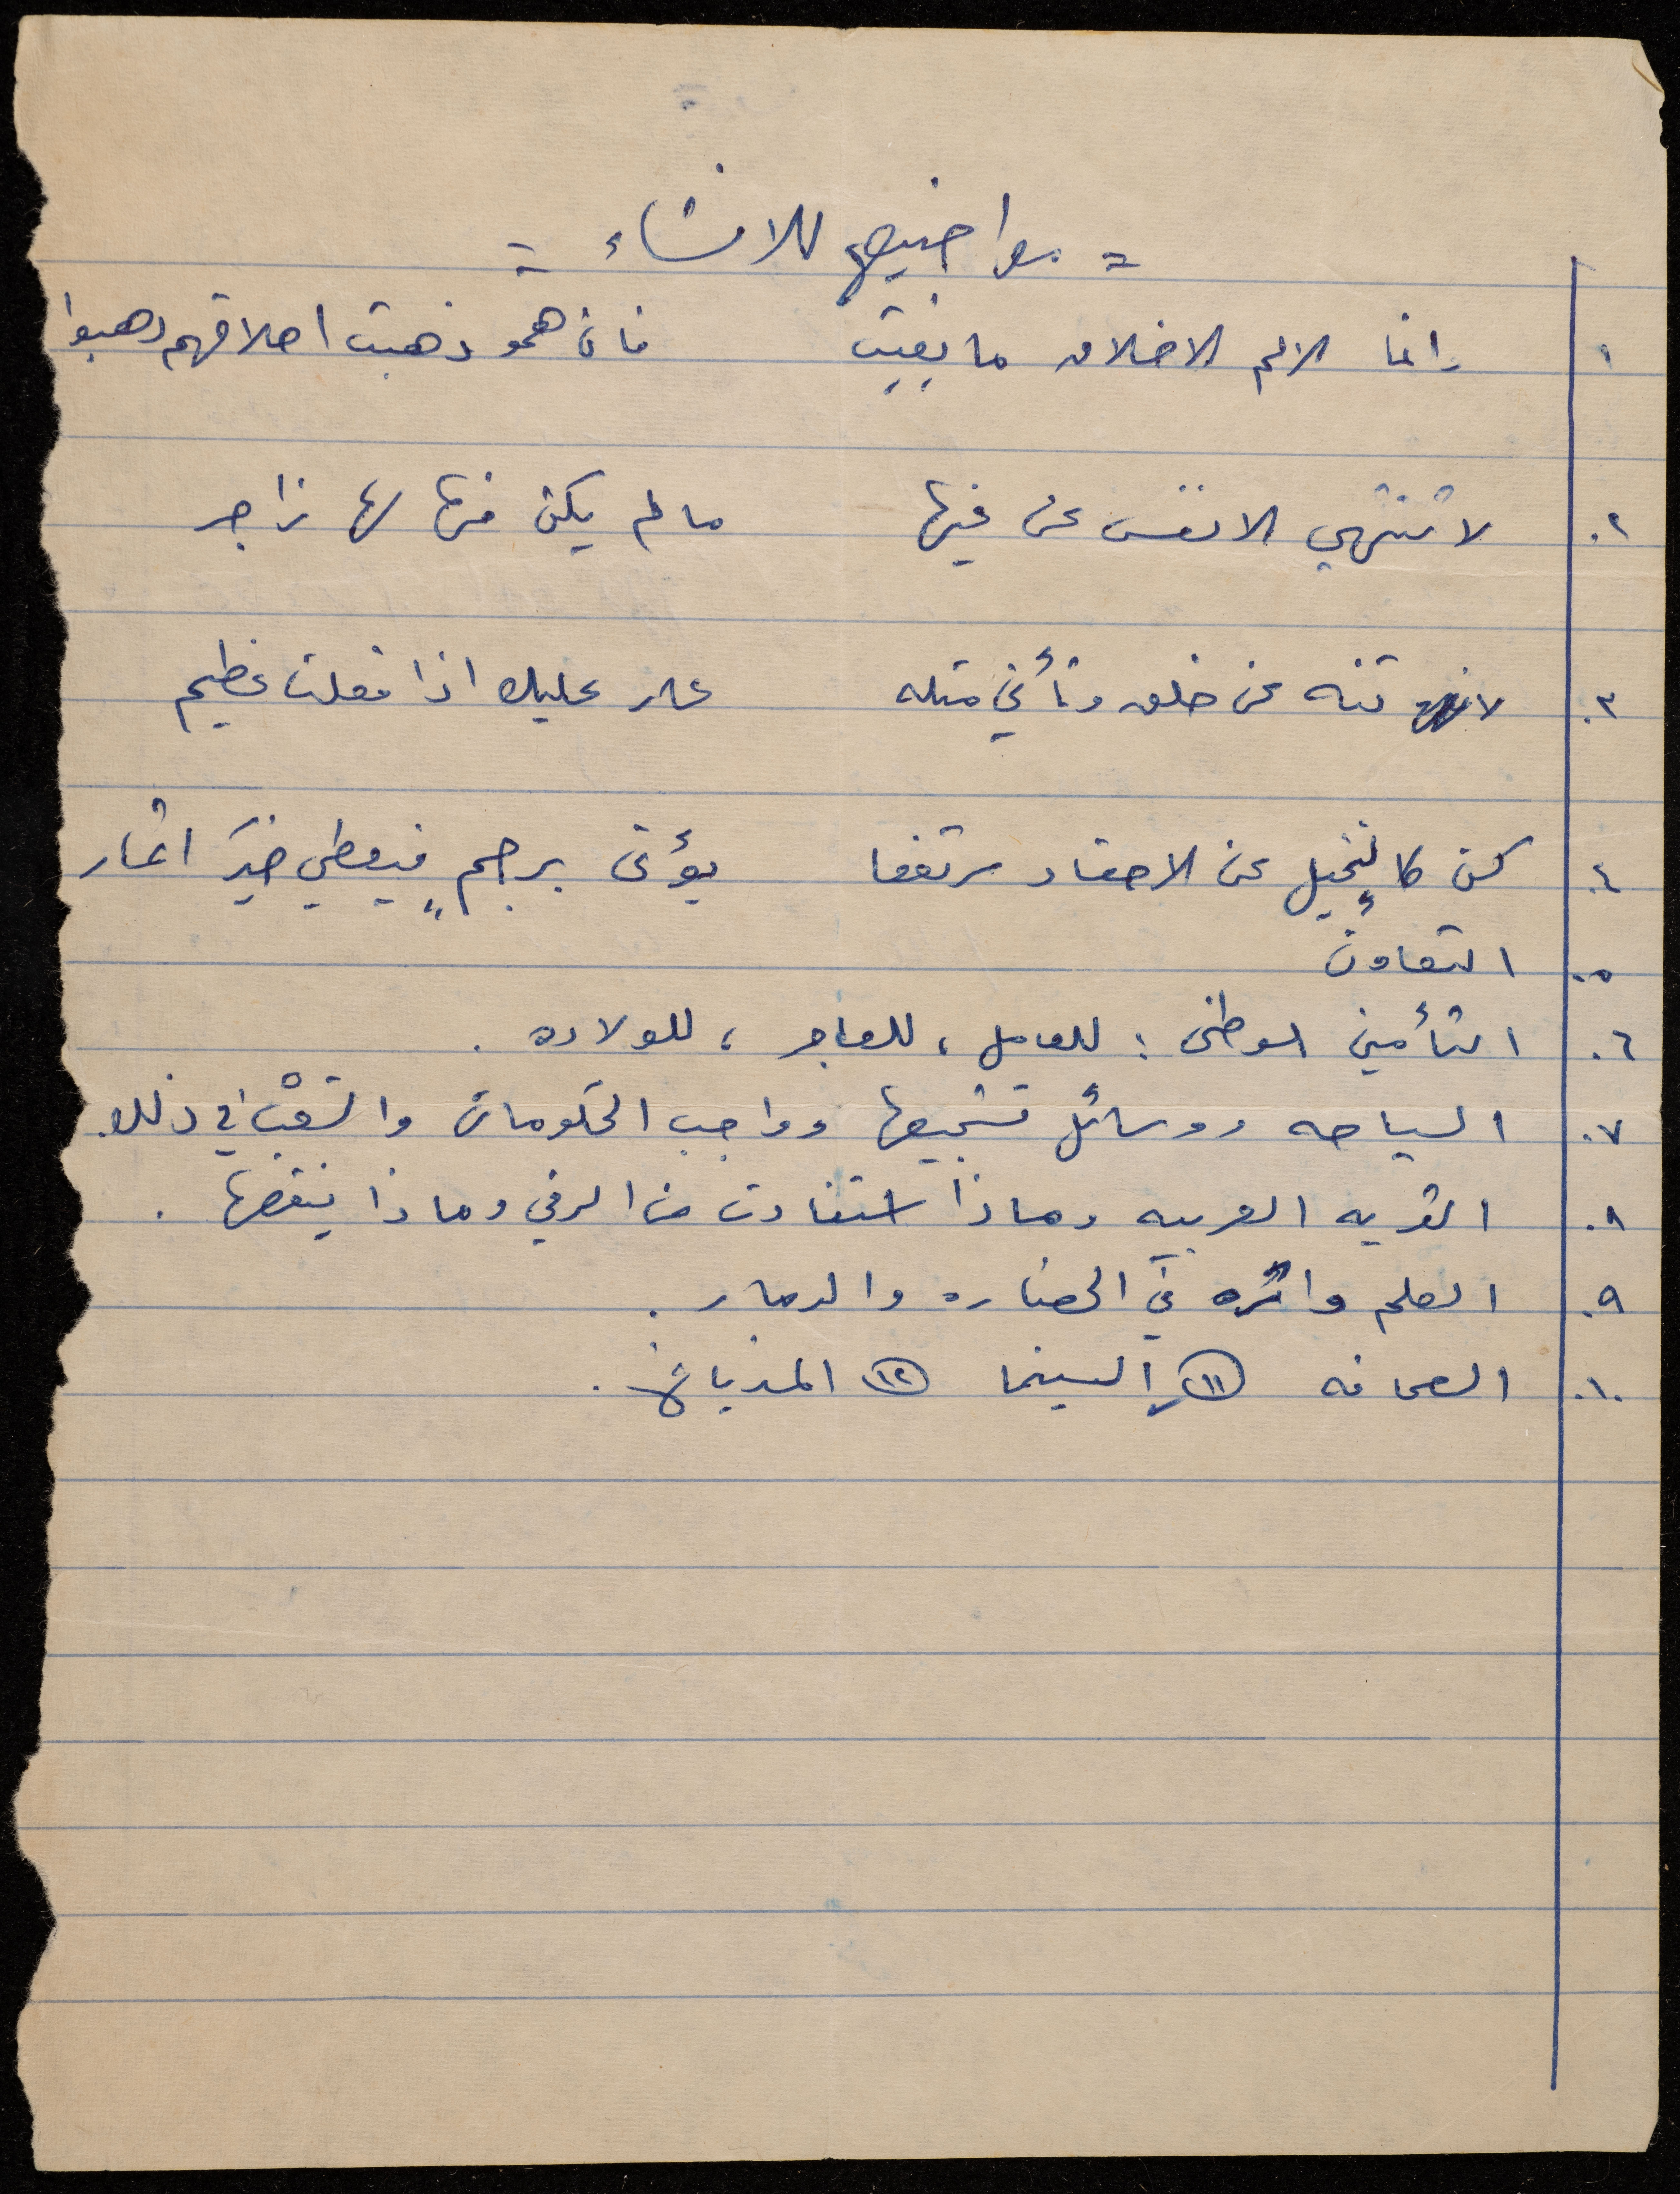 = مواضيع للانشاء =
١ وانما الامم الاخلاق ما بقيت فان همو ذهبت اخلاقهم ذهبوا
٢. لا تنتهي الانفس عن غيها ما لم يكن منها لها زاجر
٣. لا تنه عن خلق وتأتي مثله عار عليك اذا فعلت عظيم
٤. كن كالنخيل عن الاحقاد مرتفعا يؤتى برجمٍ فيعطي خيرَ اثمار
٥. التعاون
٦. التأمين الوطني : للعامل ، للعاجز ، للولاده .
٧. السياحه ووسائل تشجيعها وواجب الحكومات والشعب في ذلك.
٨. القريه العربيه وماذا استفادت من الرقي وماذا ينقصها .
٩. العلم واثره في الحضاره والدمار .
١٠. الصحافه (١١) السينما (١٢) المذياع .